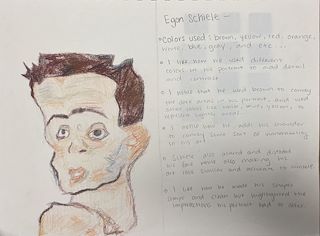 Egon Schiele -
• Colors used: brown, yellow, red, orange,
white, blue, gray, and etc...
• I like how he used different
colors in his portrait to add detail
and contrast.
• I notice that he used brown to convey
the dark areas in his portrait, and used
other colors like white, blues, yellows, to
represent lighter areas.
• I notice how he adds his shoulder
to convey some sort of
in his art
• Schiele also and distorted
his face while also making his
art look similar and accurate to himself.
• I like how he made his shapes
sharp and clean but highlighted the
imperfections his portrait had to offer.